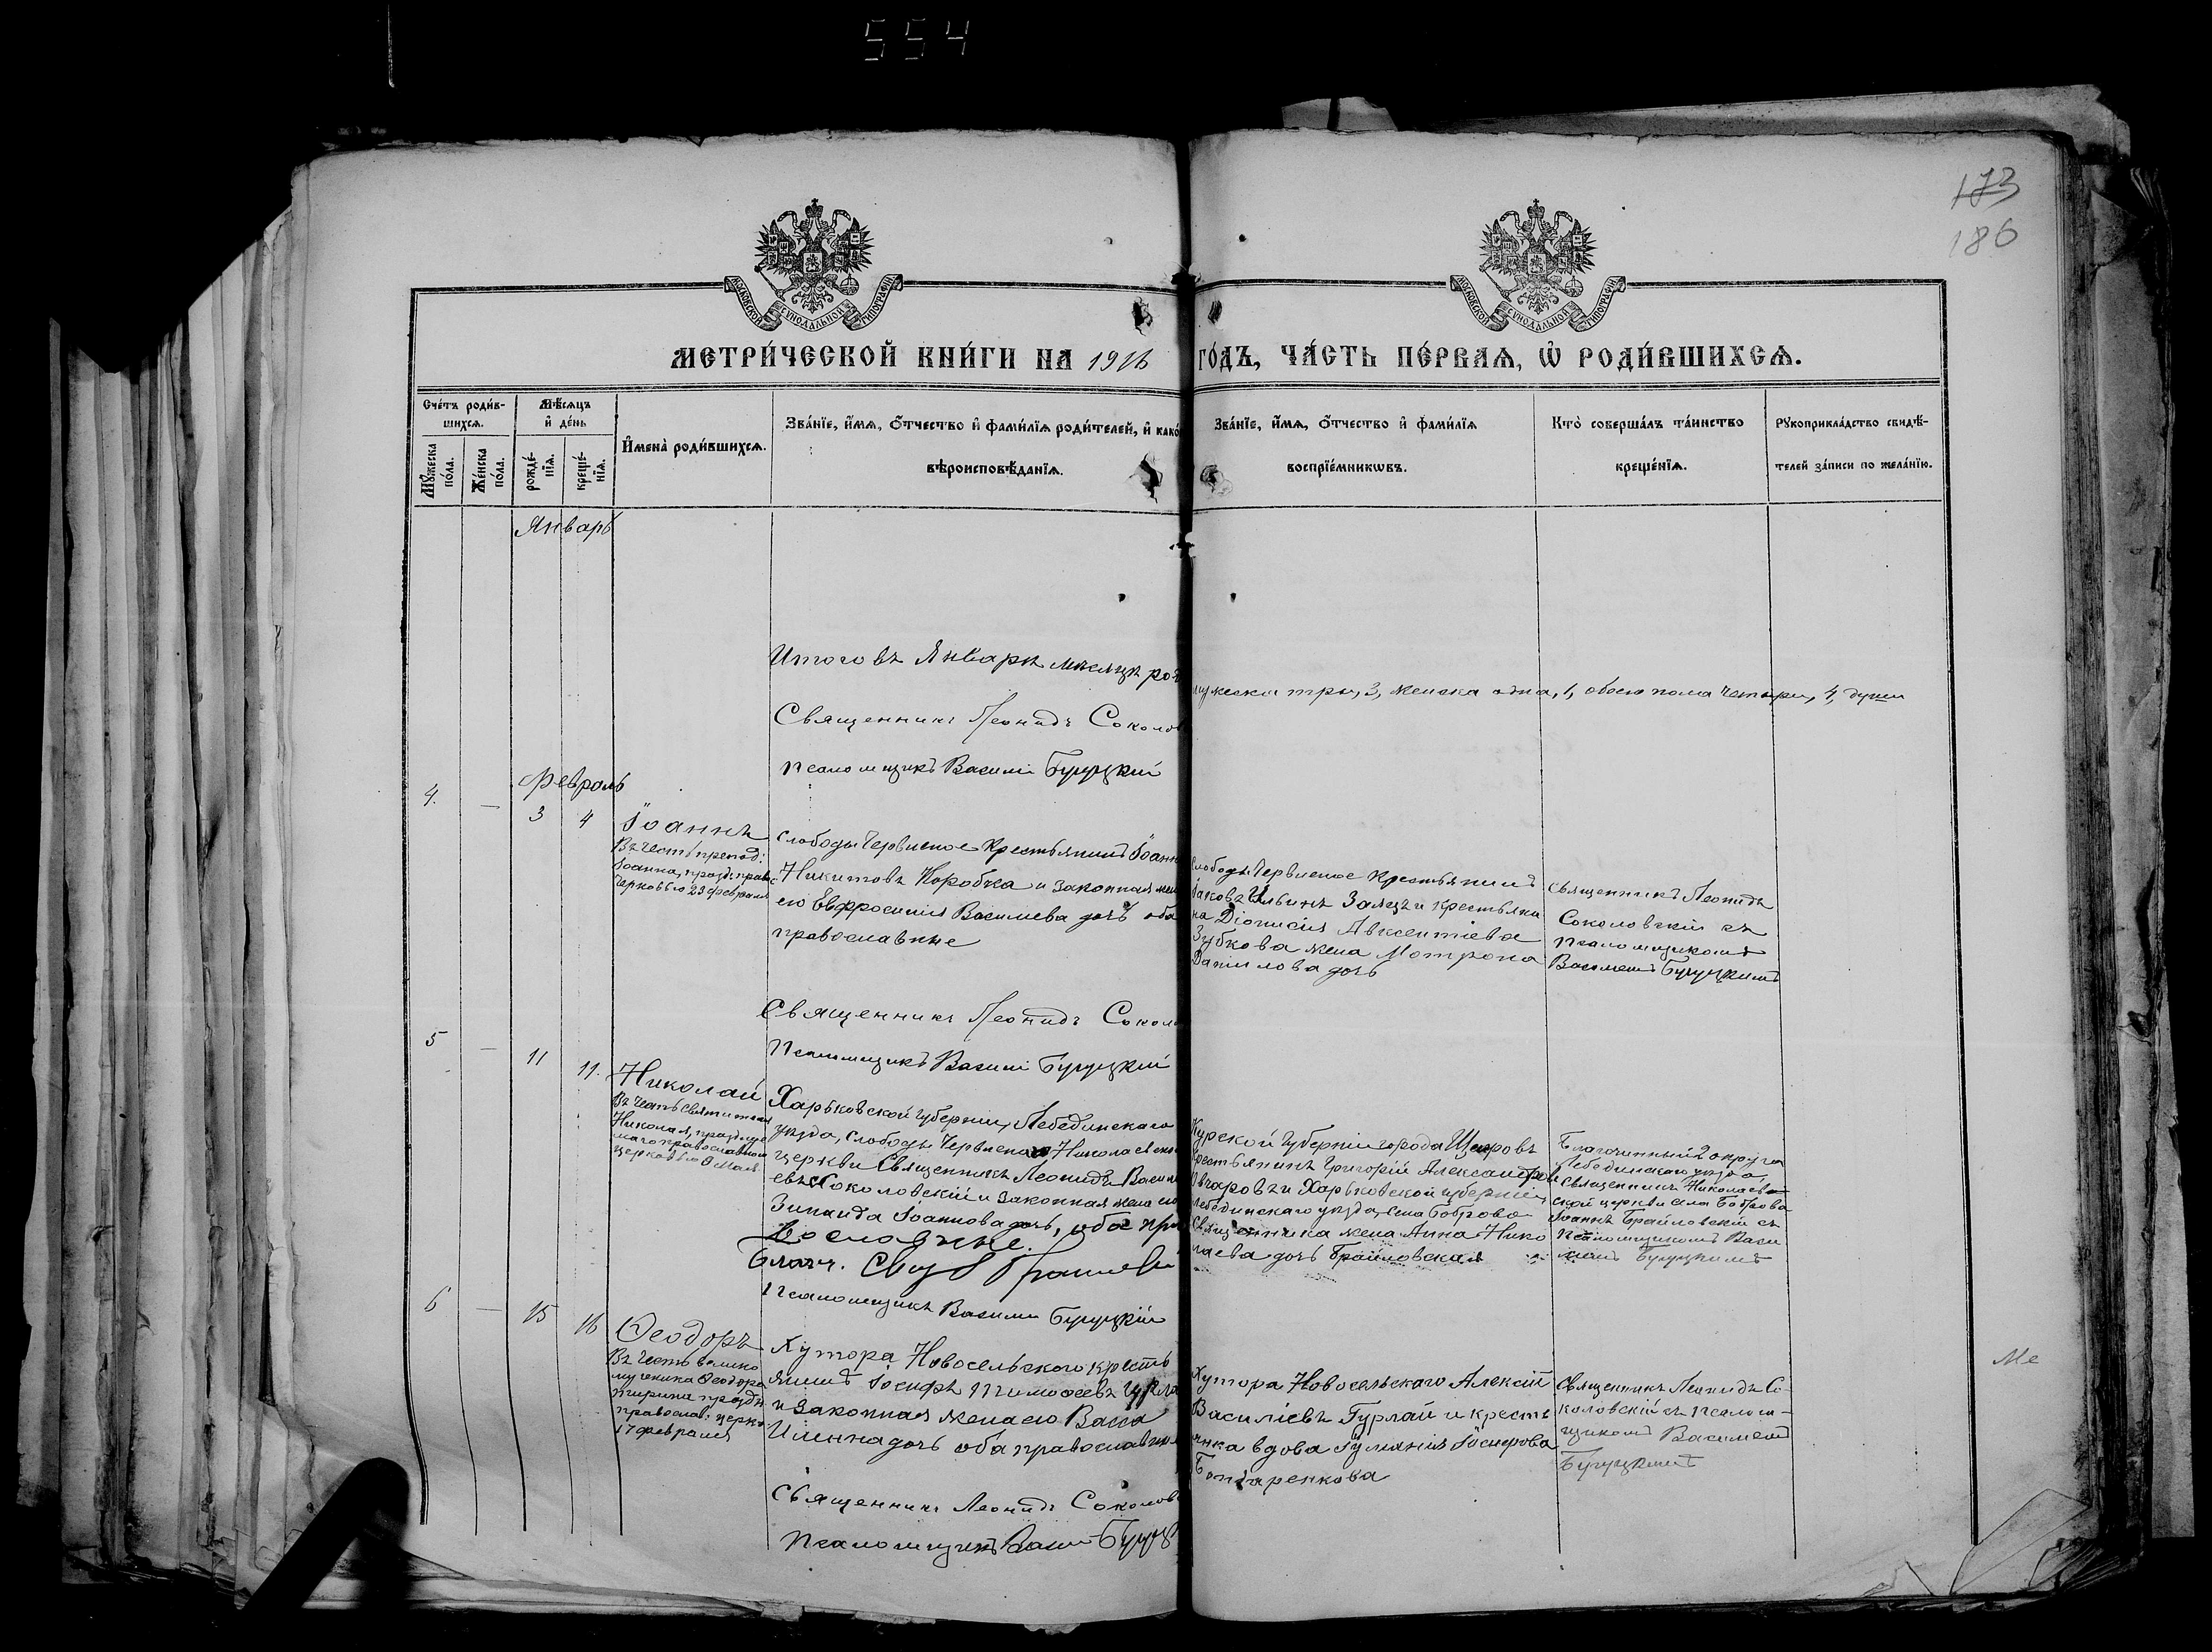 554
173
186
МОСКОВСКОЙ СУНОДАЛЬНОЙ ТИПОГРАФІИ
МОСКОВСКОЙ СУНОДАЛЬНОЙ ТИПОГРАФІИ
МЕТРИ́ЧЕСКОЙ КНИ́ГИ НА 1916 ГО́ДЪ, ЧА́СТЬ ПЕ́РВАѦ, Ѽ РОДИ́ВШИХСѦ.
Сче́тъ роди́в-
шихсѧ.
Мꙋ́жеска по́ла.
Же́нска по́ла.
Мѣ́сѧцъ
и҆ де́нь
рожде́-
нїѧ.
креще́-
нїѧ.
И҆мена̀ роди́вшихсѧ.
Зва́нїе, и҆́мѧ, ѻ҆́тчество и҆ фами́лїѧ роди́телей, и҆ како́
вѣроисповѣ́данїѧ.
Зва́нїе, и҆́мѧ, ѻ҆́тчество и҆ фами́лїѧ
воспрїе́мникѡвъ.
Кто̀ соверша́лъ та́инство
креще́нїѧ.
Рꙋкоприкла́дство свидѣ́-
телей за́писи по жела́нїю.
Январь
Итого въ Январѣ мѣсяцѣ ро
мужеска три, 3, женска одна, 1, обоего пола четыри, 4, души
Священникъ Леонидъ Соколов
Псаломщикъ Василій Бугуцкій
Февраль
4. — 3 4
Іоаннъ
Въ честь препод:
Іоанна, празд: прав
церковью 29 февраля
Слободы Червленое Крестьянинъ Іоанн
Никитовъ Коробка и законная же
его Евфросинія Василиева дочь оба
православные
Слободы Червленое крестьянинъ
Іаковъ Ильинъ Заяцъ и крестьяни
на Діонисія Авксентіева
Зубкова жена Мотрона
Данилова дочь
Священникъ Леонидъ
Соколовскій съ
псаломщикомъ
Василиемъ Бугуцкимъ
Священникъ Леонидъ Соколо
Псаломщикъ Василій Бугуцкій
5 — 11 11.
Николай
Въ честь святителя
Николая, празднуе
маго православною
церковью 9 Мая
Харьковской губерніи, Лебединскаго
уѣзда, слободы Червленаго Николаевско
церкви Священникъ Леонидъ Васил
евъ Соколовскій и законная жена его
Зинаида Іоаннова дочь, оба пра
вославные.
Курской губерніи города Щигровъ
крестьянинъ Григорій Александров
Овчаровъ и Харьковской губерніи,
Лебединскаго уѣзда, села Боброва
Священника жена Анна Нико
лаева дочь Брайловская
Благочинный 2 округа
Лебединскаго уѣзда,
Священникъ Николаев
ской церкви села Боброва
Іоаннъ Брайловскій съ
псаломщикомъ Васи
ліемъ Бугуцкимъ
Благоч. Свящ
Псаломщикъ Василій Бугуцкій
6 — 15 16
Ѳеодоръ
Въ честь велико
мученика Ѳеодора
Тирина праздн
православ: церко
17 февраля
Хутора Новосельскаго кресть
янинъ Іосифъ Тимоѳеевъ Гурла
и законная жена его Васса
Ильина дочь оба православны
Хутора Новосельскаго Алексій
Василіевъ Гурлай и кресть
янка вдова Іуліанія Іосифова
Бондаренкова
Священникъ Леонидъ Со-
коловскій съ псалом-
щикомъ Василиемъ
Бугуцкимъ
Священникъ Леонидъ Соколов
Псаломщикъ Васил Бугуц
Ме